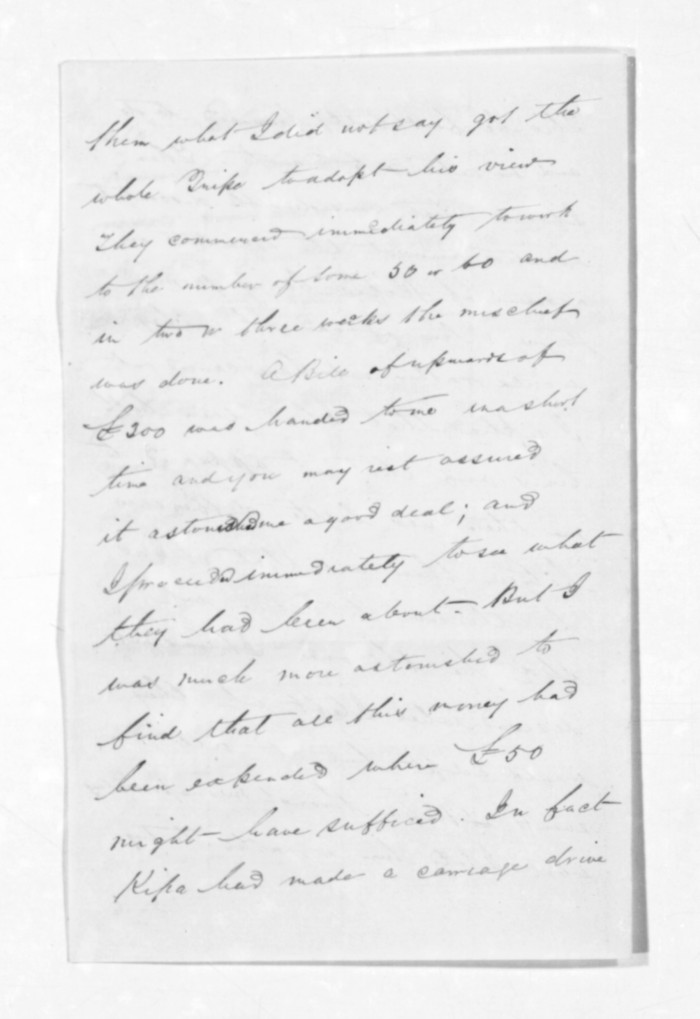 them what I did not say got the
whole Tribe to adopt his view
They commenced immediately to work
to the number of some 50 or 60 and
in two or three weeks the mischief
was done. A Bill of upwards of
£200 was handed to me in a short
time and you may rest assured
it astonished me a good deal; and
I proceeded immediately to see what
they had been about - But I
was much more astonished to
find that all this money had
been expended where £50
might have sufficed. In fact
Kipa had made a carriage drive